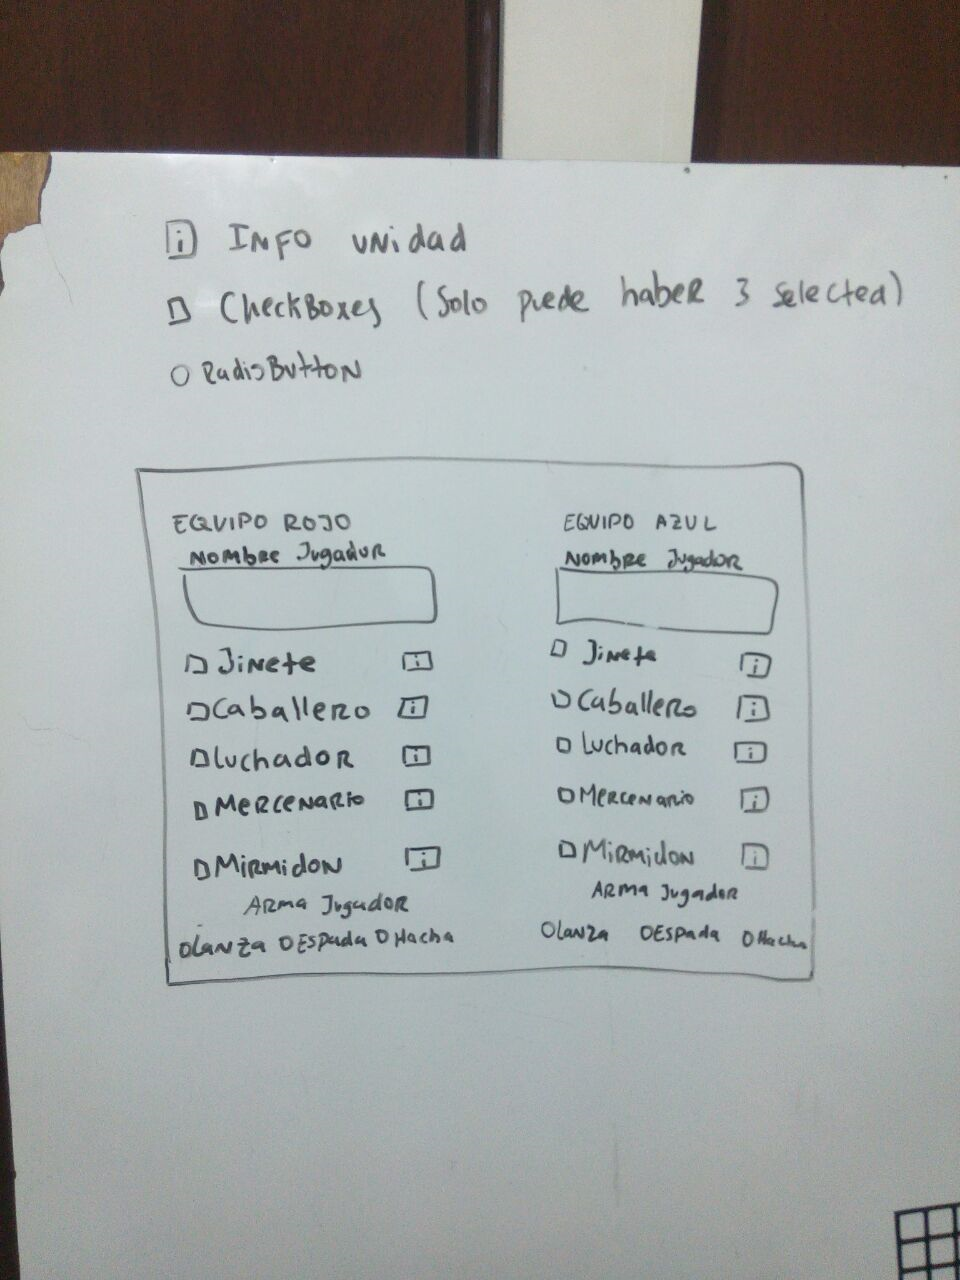 i INFO unidad
CheckBoxes (Solo puede haber 3 selected)
RadioButton
EQUIPO ROJO
Nombre Jugador
Jinete i
Caballero i
Luchador i
Mercenario i
Mirmidon i
Arma Jugador
Lanza Espada Hacha
EQUIPO AZUL
Nombre Jugador
Jinete i
Caballero i
Luchador i
Mercenario i
Mirmidon i
Arma Jugador
Lanza Espada Hacha